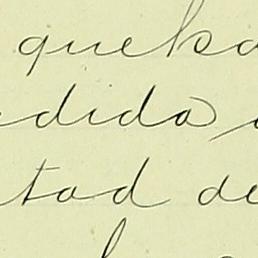 que ha
edida
tad de